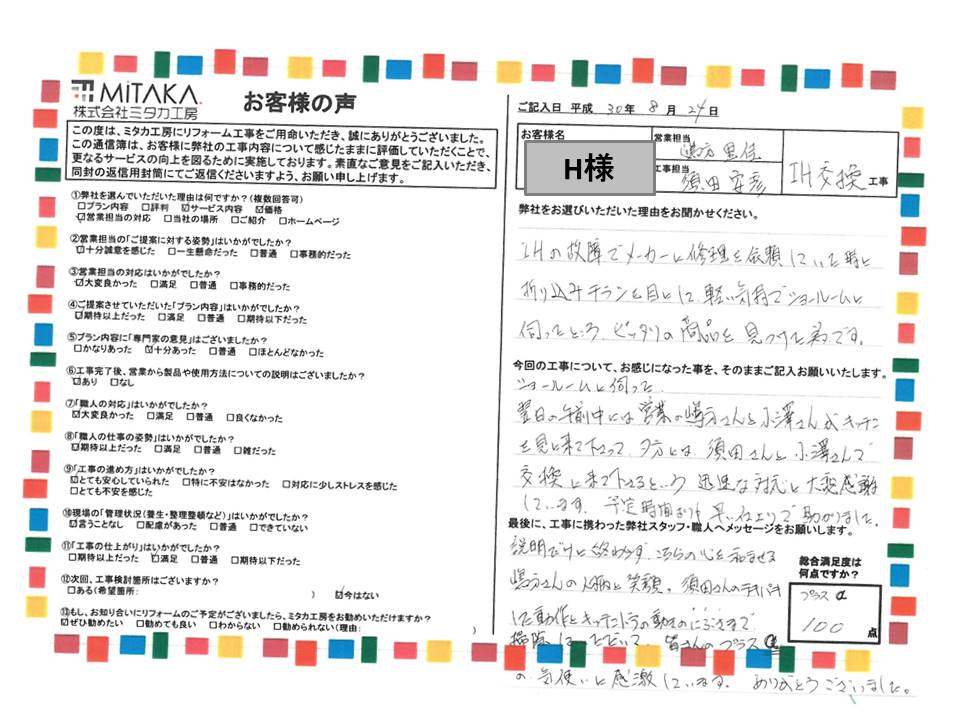 MiTAKA
株式会社ミタカ工房
お客様の声
この度は、ミタカ工房にリフォーム工事をご用命いただき、誠にありがとうございました。
この通信簿は、お客様に弊社の工事内容について感じたままに評価していただくことで、
更なるサービスの向上を図るために実施しております。素直なご意見をご記入いただき、
同封の返信用封筒にてご返信くださいますよう、お願い申し上げます。
①弊社を選んでいただいた理由は何ですか?(複数回答可)
□プラン内容 □評判 ☑サービス内容 ☑価格
☑営業担当の対応 □当社の場所 □ご紹介 □ホームページ
②営業担当の「ご提案に対する姿勢」はいかがでしたか?
☑十分誠意を感じた □一生懸命だった □普通 □事務的だった
③営業担当の対応はいかがでしたか?
☑大変良かった □満足 □普通 □事務的だった
④ご提案させていただいた「プラン内容」はいかがでしたか?
☑期待以上だった □満足 □普通 □期待以下だった
⑤プラン内容に「専門家の意見」はございましたか?
□かなりあった ☑十分あった □普通 □ほとんどなかった
⑥工事完了後、営業から製品や使用方法についての説明はございましたか?
☑あり □なし
⑦「職人の対応」はいかがでしたか?
☑大変良かった □満足 □普通 □良くなかった
⑧「職人の仕事の姿勢」はいかがでしたか?
☑期待以上だった □満足 □普通 □雑だった
⑨「工事の進め方」はいかがでしたか?
☑とても安心していられた □特に不安はなかった □対応に少しストレスを感じた
□とても不安を感じた
⑩現場の「管理状況(養生・整理整頓など)」はいかがでしたか?
☑言うことなし □配慮があった □普通 □できていない
⑪「工事の仕上がり」はいかがでしたか?
□期待以上だった ☑満足 □普通 □期待以下だった
⑫次回、工事検討箇所はございますか?
□ある(希望箇所: ) ☑今はない
⑬もし、お知り合いにリフォームのご予定がございましたら、ミタカ工房をお勧めいただけますか?
☑ぜひ勧めたい □勧めても良い □わからない □勧められない(理由: )
ご記入日 平成 30年 8月 24日
お客様名
H様
営業担当
工事担当 須田
IH交換 工事
弊社をお選びいただいた理由をお聞かせください。
IHの故障でメーカーに修理を依頼していた時に
折り込みチラシを目にし、軽い気持でショールームに
伺ったところ、ピッタリの商品を見つけた為です。
今回の工事について、お感じになった事を、そのままご記入お願いいたします。
ショールームに伺って、
翌日の午前中には営業の嶋方さんと小澤さんがキッチン
を見に来て下さって 夕方には、須田さんと小澤さんで
交換に来て下さるという 迅速な対応に大変感謝
しています。予定時間よりも早い仕上りで助かりました。
最後に、工事に携わった弊社スタッフ・職人へメッセージをお願いします。
説明だけに終わらず こちらの心を和ませる
嶋方さんの人柄と笑顔。須田さんのテキパキ
した動作とキッチン
掃除していただいて、皆さんのプラスα
の気使いに感激しています。ありがとうございました。
総合満足度は
何点ですか?
プラスα
100 点